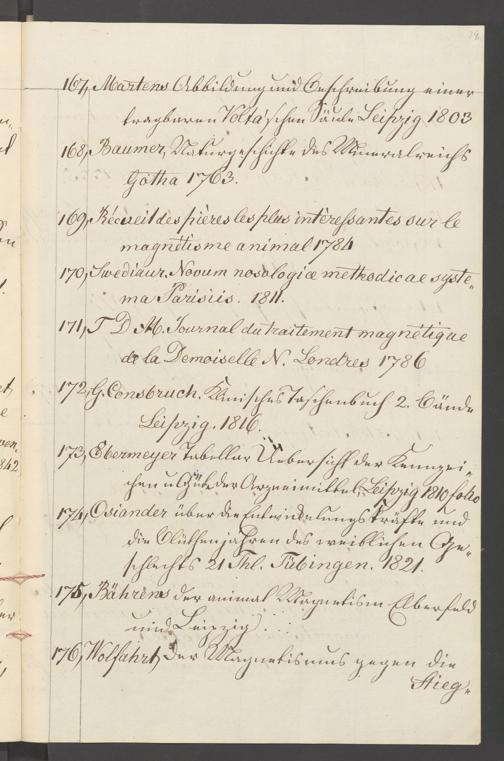 167, Martens Abbildung und Beschreibung einer
tragbaren Volta'schen Säule Leipzig 1803
168, Baumer, Naturgeschichte des Mineralreichs
Gotha 1763.
169, Récueil des pieres les plus intéressantes sur le
magnétisme animal 1784
170, Swediaur. Novum nosologiæ methodicae syste„
ma Parisiis. 1811.
171, T D M. Journal du traitement magnétique
de la Demoiselle N. Londres 1786
172, G. Consbruch. Klinisches Taschenbuch 2. Bände
Leipzig. 1816.
173, Ebermeyer Tabellar Uebersicht der Kennzei„
chen u Güte der Arzneimittel, Leipzig 1810 folio
174, Osiander über die Entwickelungskräfte und
die Blüthenjahren des weiblichen Ge„
schlechts 21 Thl. Tübingen. 1821.
175, Bährens der animal Magnetism Elberfeld
und Leipzig
176, Wolfahrt, Der Magnetismus gegen die
Stieg„